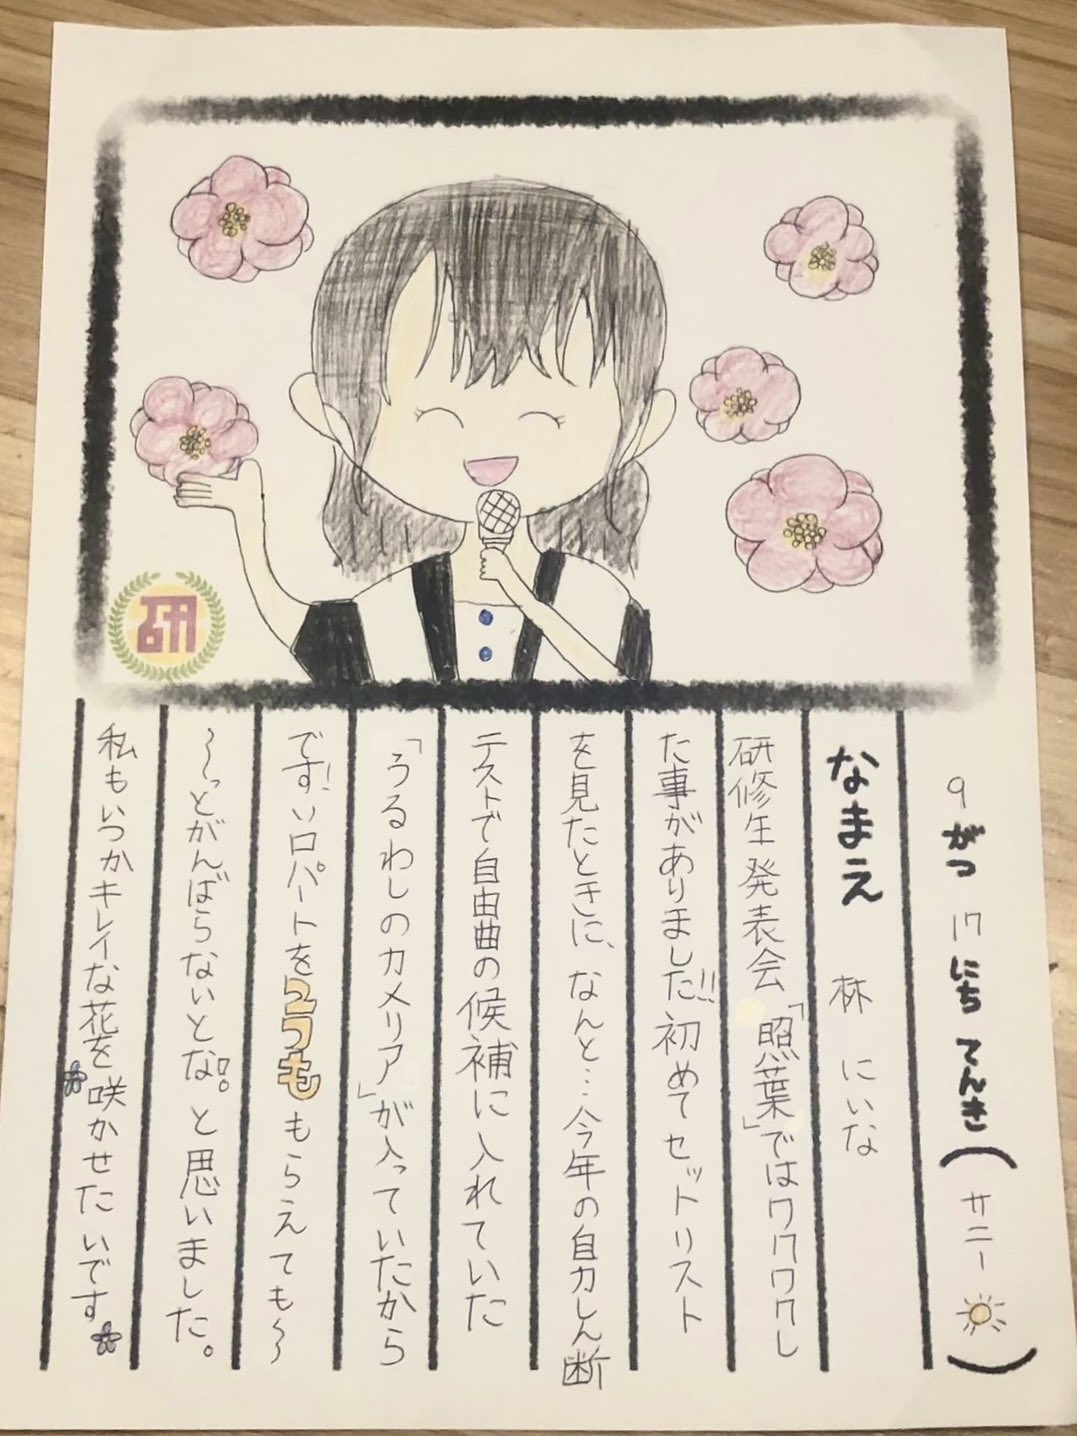 9 がつ 17 にち てんき (サニー)
なまえ 林 にいな
研修生発表会「照葉」ではワクワクし
た事がありました!! 初めてセットリスト
を見たときに、なんと…今年の自力しん断
テストで自由曲の候補に入れていた
「うるわしのカメリア」が入っていたから
です! ソロパートを2つももらえても〜
〜っとがんばらないとな!。と思いました。
私もいつかキレイな花を咲かせたいです
研